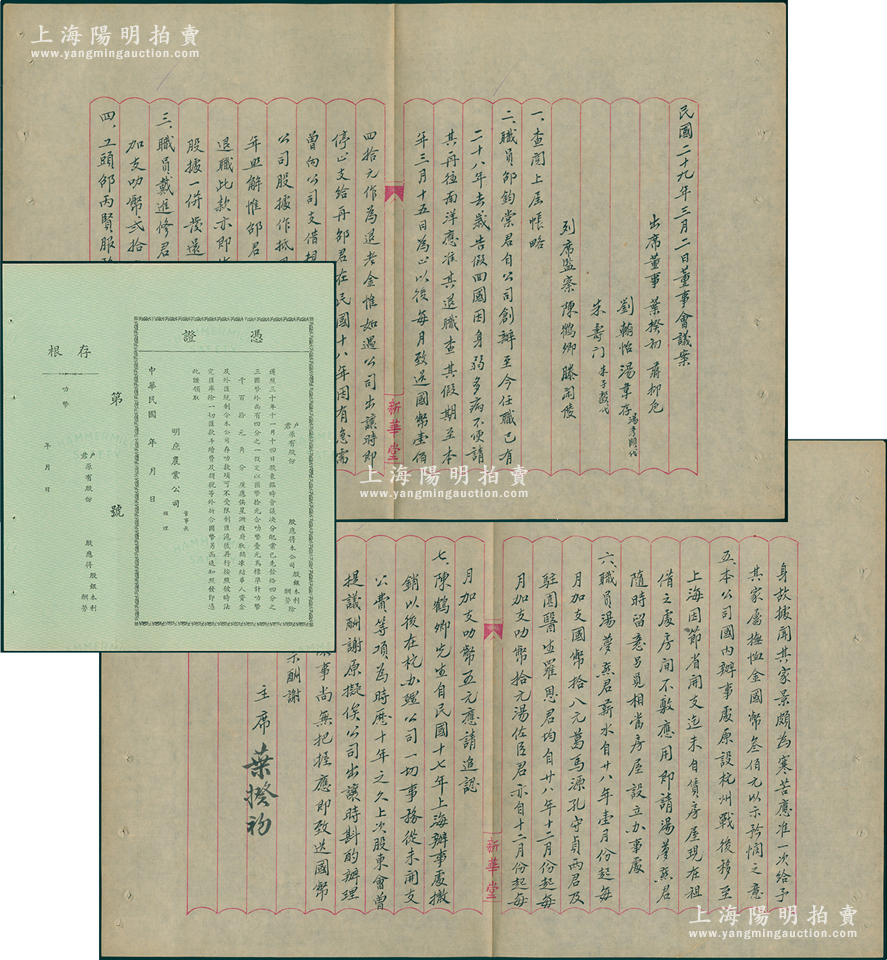 上海陽明拍賣
www.yangmingauction.com
民國二十九年三月二日董事會議案
出席董事 葉揆初 蔣抑卮
劉翰怡 湯葦存 湯彥頤代
朱壽門 朱子毅代
列席監察 陳鶴卿 滕開俊
一、查閱上屆帳略
二、職員邵鈞棠君自公司創辦至今任職已有
二十八年去歲告假回國因身弱多病不便請
其再往南洋應准其退職查其假期至本
年三月十五日為止以後每月致送國幣壹佰
四拾元作為退老金惟如遇公司出讓時即
停止支給再邵君在民國十八年因有急需
曾向公司支借
公司股據作抵
年無解惟邵君
退職此款亦即
股據一併發還
三、職員戴進修君
加支叻幣弍拾
四、工頭邵丙賢服
身故據聞其家景頗為寒苦應准一次給予
其家屬撫恤金國幣叁佰元以示矜憫之意
五、本公司國內辦事處原設杭州戰後移至
上海因節省開支迄未自賃房屋現在租
借之處房間不敷應用即請湯夢熊君
隨時留意另覓相當房屋設立办事處
六、職員湯夢熊君薪水自廿八年壹月份起每
月加支國幣拾八元萬馬源孔守貞兩君及
駐園醫生羅恩君均自廿八年十二月份起每
月加支叻幣拾元湯佐臣君亦自十二月份起每
月加支叻幣五元應請追認
七、陳鶴卿先生自民國十七年上海辦事處撤
銷以後在杭办理公司一切事務從未開支
公費等項為時歷十年之久上次股東會曾
提議酬謝原擬俟公司出讓時斟酌辦理
事尚無把握應即致送國幣
酬謝
主席 葉揆初
新華堂
新華堂
憑證
戶
君原有股份 股應得本公司 股銀本利 酬勞 除
遵照三十年十一月十四日股東臨時會議決分配案已先發給四分之
三國幣外尚有四分之一
千百拾元角分
此據領取
明庶農業公司 董事長 經理
中華民國 年 月 日
第 號
存根
戶
君原有股份 股應得 股銀本利 酬勞
叻幣
年 月 日
上海陽明拍賣
www.yangmingauction.com
上海陽明拍賣
www.yangmingauction.com